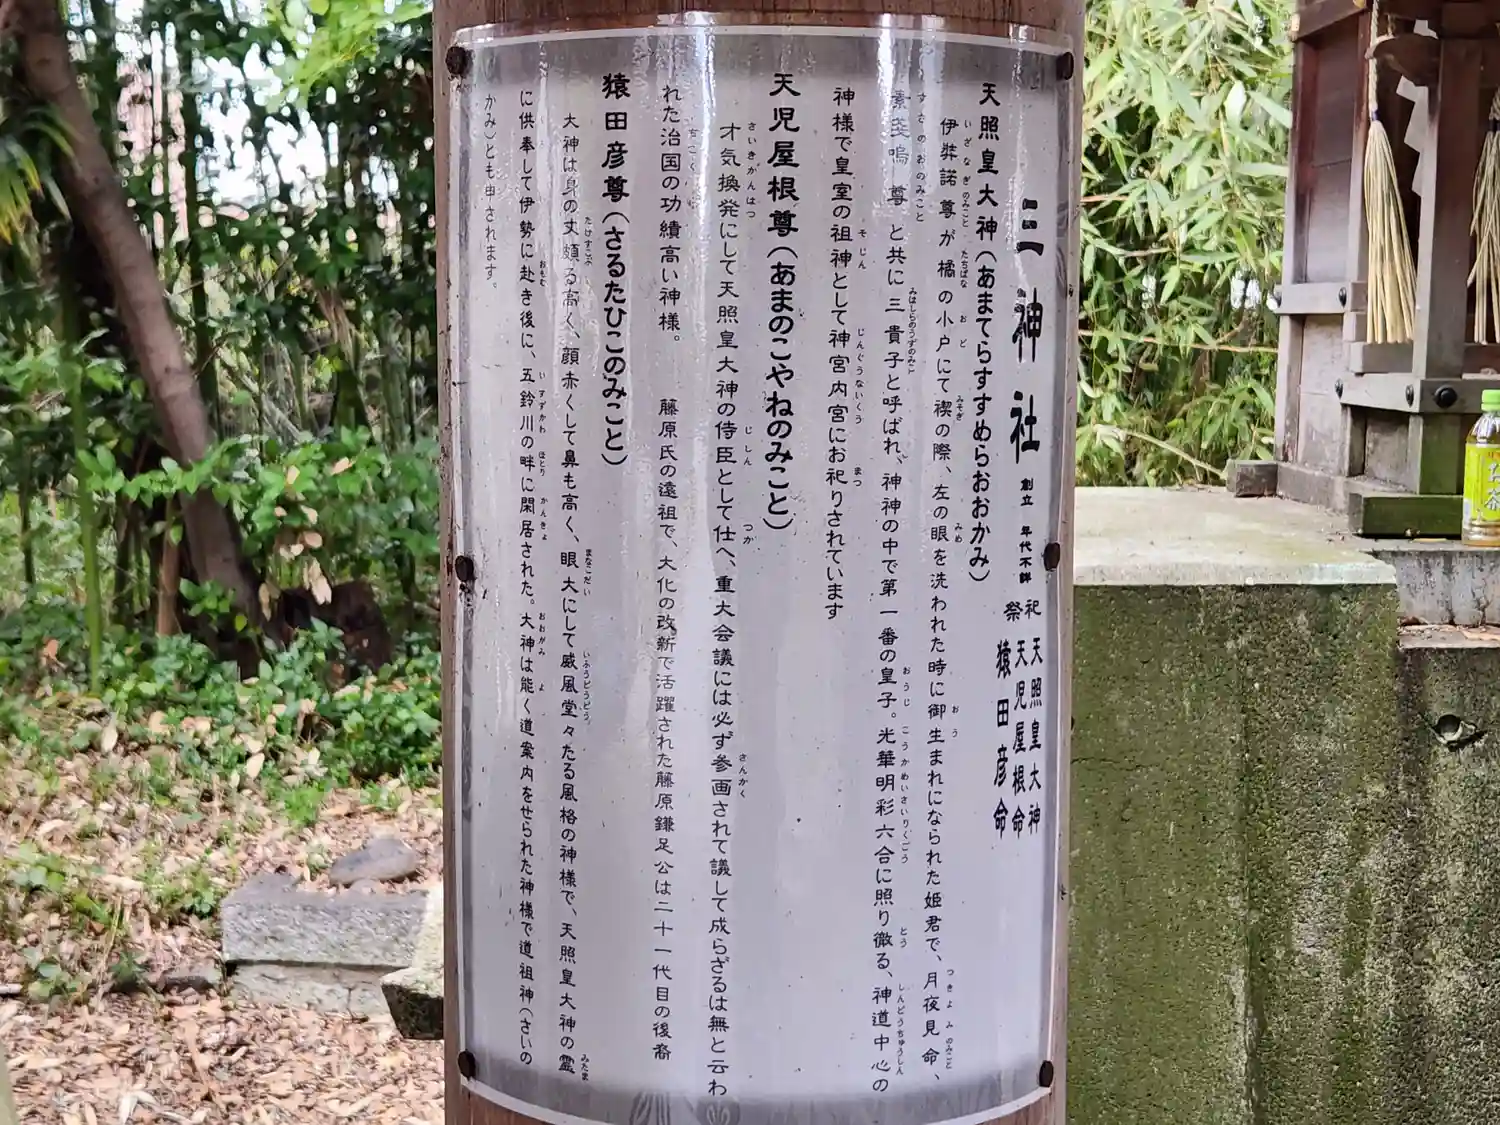 三神社 創立 年代不詳 祭祀 天照皇大神
天児屋根命
猿田彦命
天照皇大神(あまてらすすめらおおかみ)
伊弉諾尊が橘の小戸にて禊の際、左の眼を洗われた時に御生まれになられた姫君で、月夜見命、
素戔嗚尊と共に三貴子と呼ばれ、神神の中で第一番の皇子。光華明彩六合に照り徹る、神道中心の
神様で皇室の祖神として神宮内宮にお祀りされています
天児屋根尊(あまのこやねのみこと)
才気換発にして天照皇大神の侍臣として仕へ、重大会議には必ず参画されて議して成らざるは無と云わ
れた治国の功績高い神様。 藤原氏の遠祖で、大化の改新で活躍された藤原鎌足公は二十一代目の後裔
猿田彦尊(さるたひこのみこと)
大神は身の丈頗る高く、顔赤くして鼻も高く、眼大にして威風堂々たる風格の神様で、天照皇大神の霊
に供奉して伊勢に赴き後に、五鈴川の畔に閑居された。大神は能く道案内をせられた神様で道祖神(さいの
かみ)とも申されます。
お茶